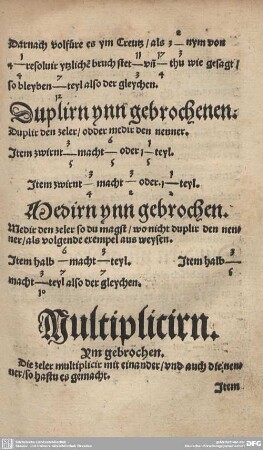 Darnach volfüre es ym Creutz/als 3—nym von
2
1—resoluir ytzlichē bruch stet—vñ—thu wie gesagt/
4 11 17
so bleyben—teyl also der gleychen.
7
12
Duplirn ynn gebrochenen.
Duplir den zeler/odder medir den nenner.
Item zwirnt—macht—oder 1—teyl.
Item zwirnt—macht—oder 1—teyl.
Medirn ynn gebrochen.
Medir den zeler so du magst/wo nicht duplir den nen
ner/als volgende exempel aus weysen.
Item halb—macht—teyl. Item halb—
macht—teyl also der gleychen.
10
Multiplicirn.
Ym gebrochen.
Die zeler multiplicir mit einander/vnd auch die nen
ner/so hastu es gemacht.
Item